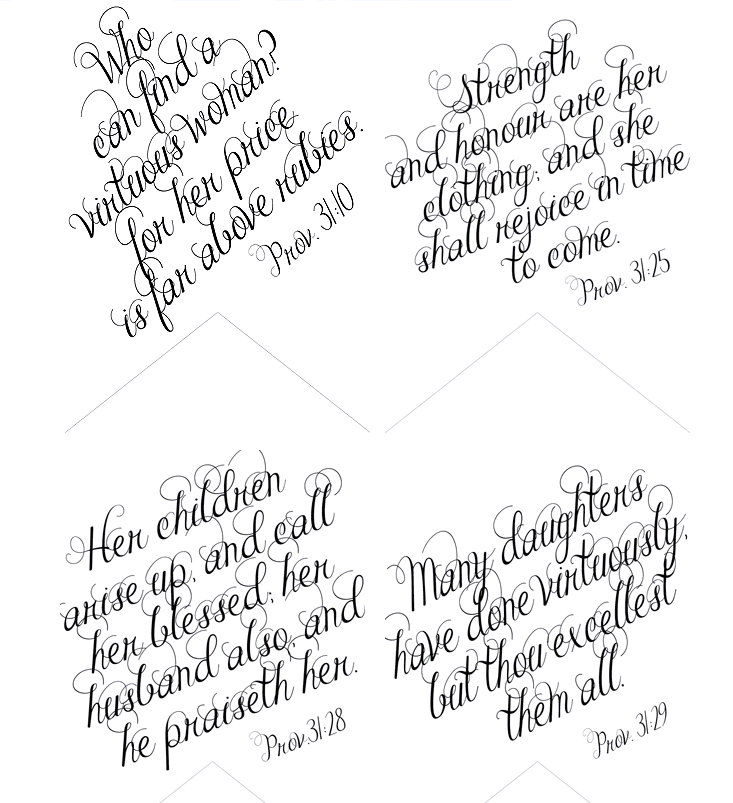 Who
can find a
virtuous woman?
for her price
is far above rubies.
Prov. 31:10
Strength
and honour are her
clothing; and she
shall rejoice in time
to come.
Prov. 31:25
Her children
arise up, and call
her blessed; her
husband also, and
he praiseth her.
Prov. 31:28
Many daughters
have done virtuously,
but thou excellest
them all.
Prov. 31:29